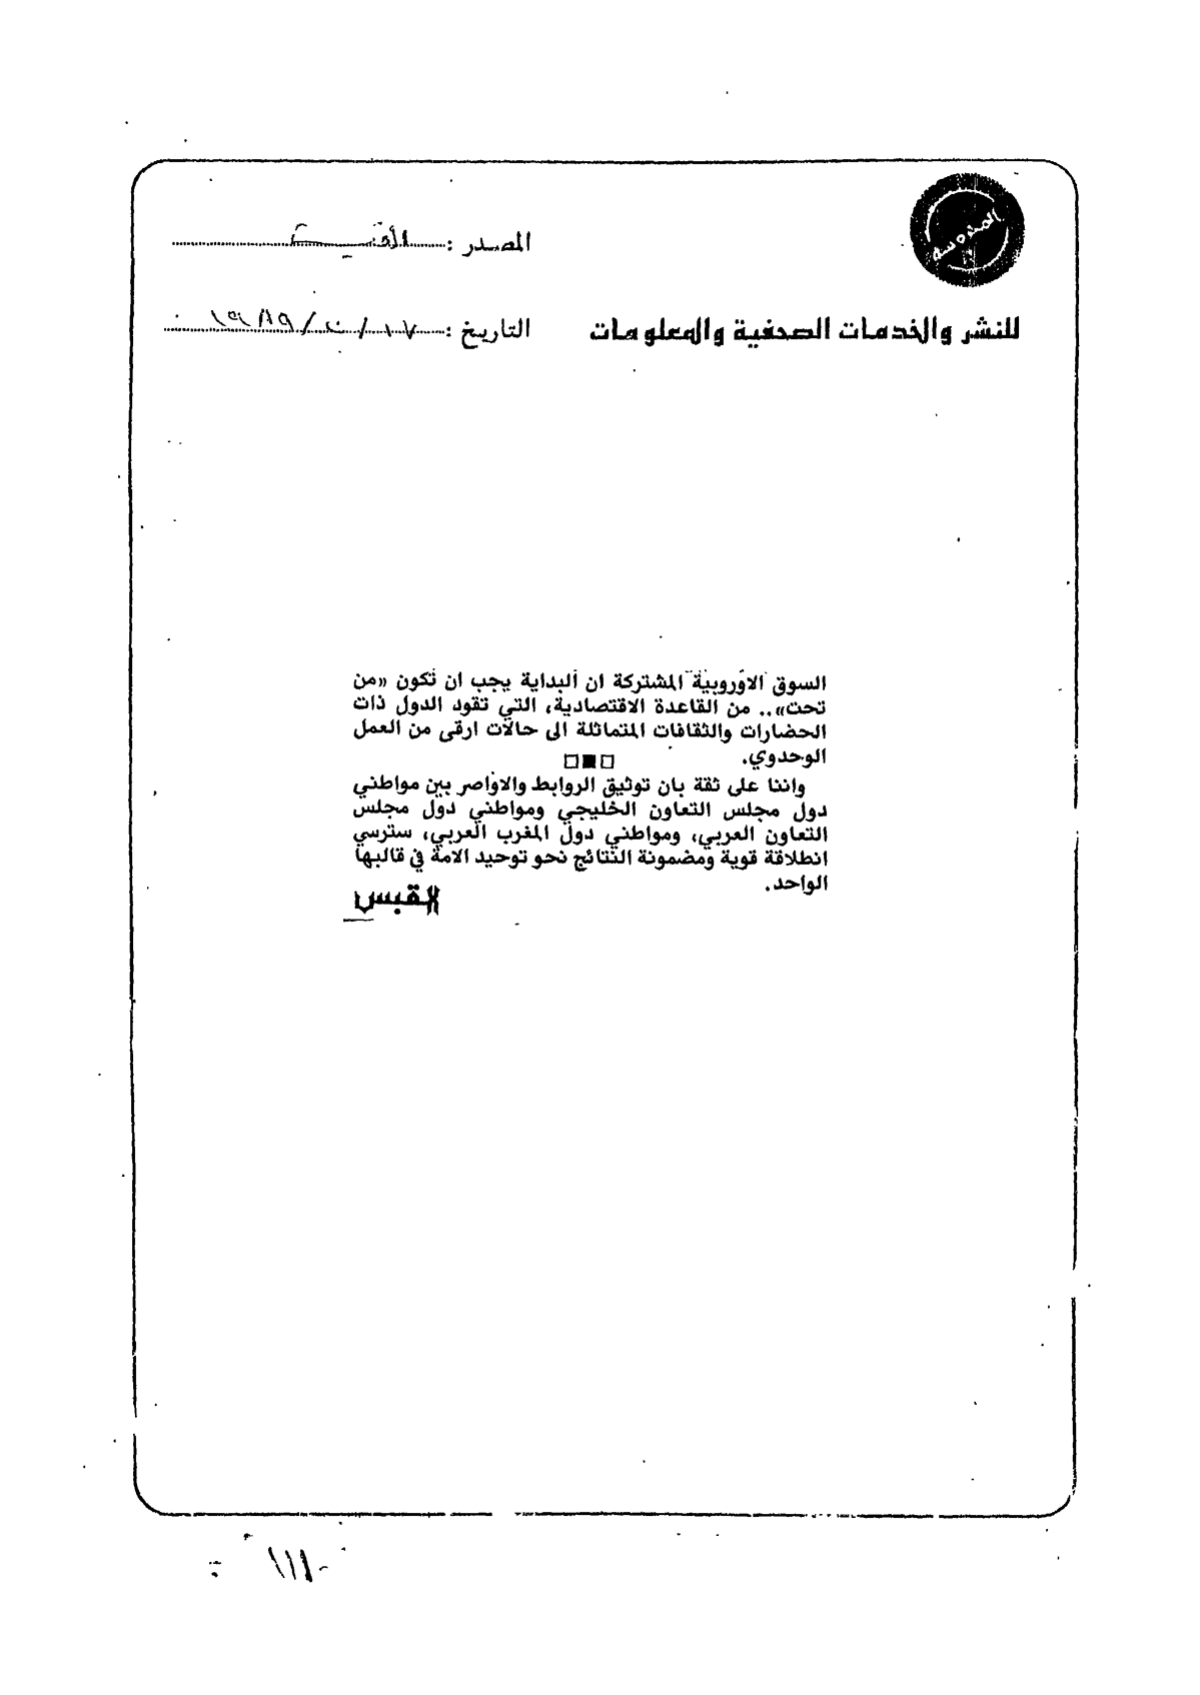 المصدر :
للنشر والخدمات الصحفية والمعلومات
التاريخ : ١٩٨٩/ /١٧
السوق الاوروبية المشتركة ان البداية يجب ان تكون «من
تحت».. من القاعدة الاقتصادية، التي تقود الدول ذات
الحضارات والثقافات المتماثلة الى حالات ارقى من العمل
الوحدوي.
واننا على ثقة بان توثيق الروابط والاواصر بين مواطني
دول مجلس التعاون الخليجي ومواطني دول مجلس
التعاون العربي، ومواطني دول المغرب العربي، سترسي
انطلاقة قوية ومضمونة النتائج نحو توحيد الامة في قالبها
الواحد.
القبس